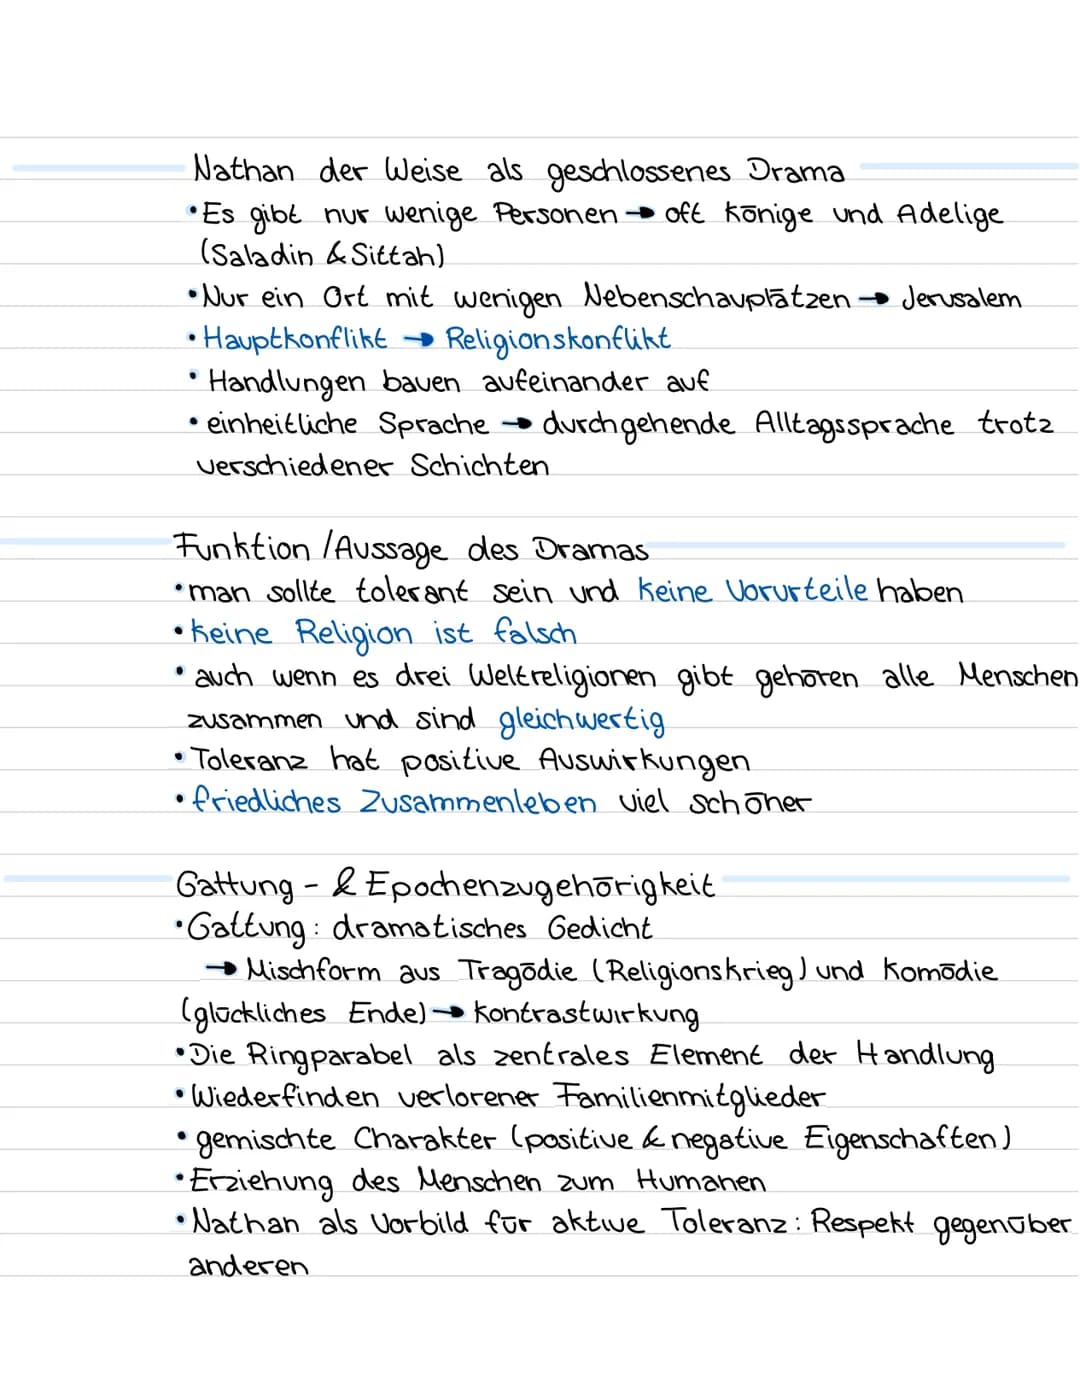 Nathan der Weise als geschlossenes Drama
• Es gibt nur wenige Personen → oft Könige und Adelige
(Saladin & Sittah)
• Nur ein Ort mit wenigen Nebenschauplätzen → Jerusalem
• Hauptkonflikt → Religionskonflikt
• Handlungen bauen aufeinander auf
• einheitliche Sprache → durchgehende Alltagssprache trotz
verschiedener Schichten
Funktion / Aussage des Dramas
• man sollte tolerant sein und keine Vorurteile haben
• keine Religion ist falsch
• auch wenn es drei Weltreligionen gibt gehören alle Menschen
zusammen und sind gleichwertig
• Toleranz hat positive Auswirkungen
• friedliches Zusammenleben viel schöner
Gattung - & Epochenzugehörigkeit
• Gattung: dramatisches Gedicht
→ Mischform aus Tragödie (Religionskrieg) und Komödie
(glückliches Ende) → Kontrastwirkung
• Die Ringparabel als zentrales Element der Handlung
• Wiederfinden verlorener Familienmitglieder
• gemischte Charakter (positive & negative Eigenschaften)
• Erziehung des Menschen zum Humanen
• Nathan als Vorbild für aktive Toleranz: Respekt gegenüber
anderen